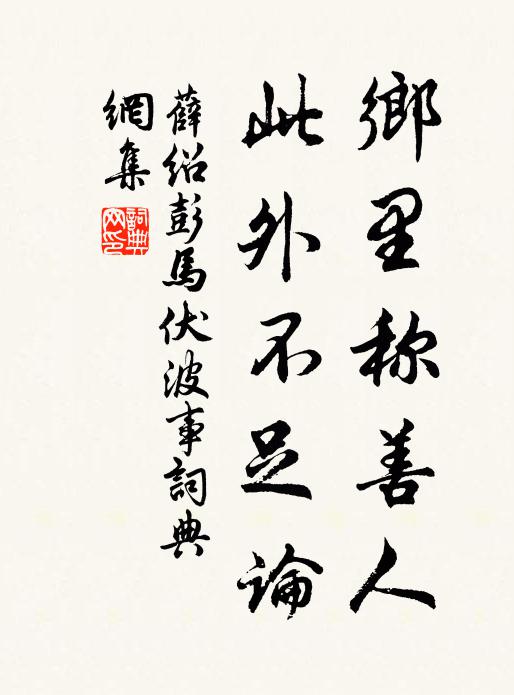 鄉里称善人
此外不足論
薛绍彭馬伏波事詞典
網集
詞典
网印